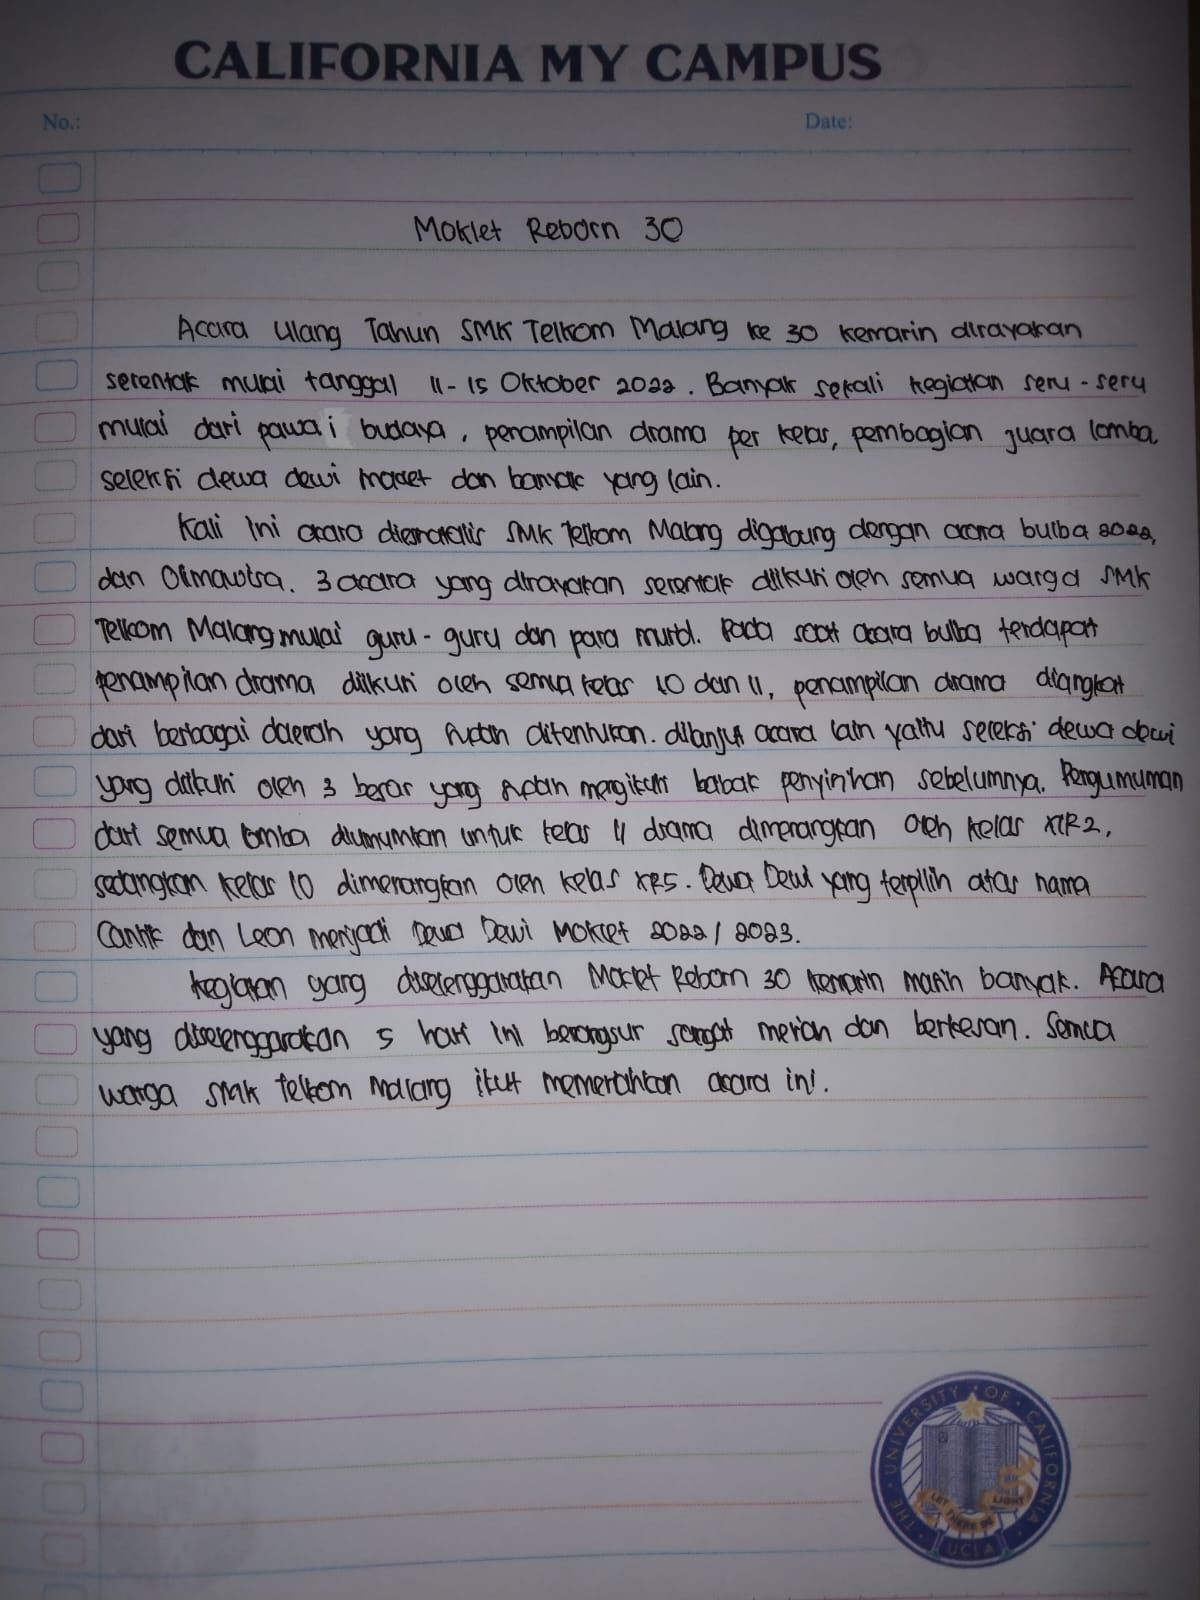 CALIFORNIA MY CAMPUS
No.: Date:
Moklet Reborn 30
Acara Ulang Tahun SMK Telkom Malang ke 30 kemarin dirayakan
serentak mulai tanggal 11-15 Oktober 2022. Banyak sekali kegiatan seru-seru
mulai dari pawai budaya, penampilan drama per kelas, pembagian juara lomba,
seleksi dewa dewi moklet dan banyak yang lain.
Kali ini acara diesnatalis SMK Telkom Malang digabung dengan acara bulba 2022,
dan Olimawtsa. 3 acara yang dirayakan serentak diikuri oleh semua warga SMK
Telkom Malang mulai guru-guru dan para murid. Pada saat acara bulba terdapat
penampilan drama diikuri oleh semua kelas 10 dan 11, penampilan drama diangkat
dari berbagai daerah yang sudah ditentukan. dilanjut acara lain yaitu seleksi dewa dewi
yang diikuti oleh 3 besar yang sudah mengikuti babak penyisihan sebelumnya. Pengumuman
dari semua lomba diumumkan untuk kelas 11 drama dimenangkan oleh kelas XIR2,
sedangkan kelas 10 dimenangkan oleh kelas XR5. Dewa Dewi yang terpilih atas nama
Cantik dan Leon menjadi Dewa Dewi Moklet 2022/2023.
kegiatan yang diselenggarakan Moklet Reborn 30 kemarin masih banyak. Acara
yang diselenggarakan 5 hari ini berangsur sangat meriah dan berkesan. Semua
warga SMK Telkom Malang ikut memeriahkan acara ini.
THE UNIVERSITY OF CALIFORNIA
LET THERE BE LIGHT
UCLA